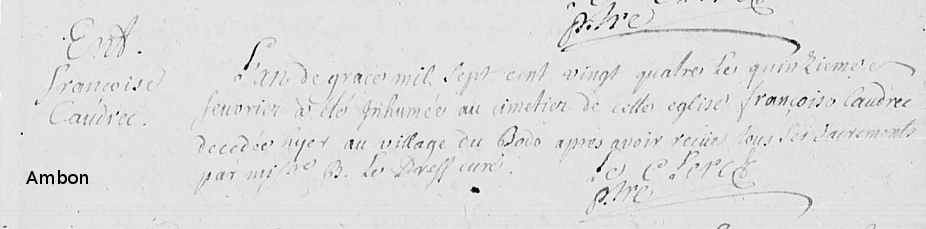 ptre
Ent.
françoise
Caudrec.
L'an de grace mil sept cent vingt quatre les quinzieme
feuvrier a été Inhumée au cimetier de cette eglise françoise Caudrec
decedée hyer au village du Bodo apres avoir recüe tous ses sacrements
par misre B. Le Dreff curé.
Le Clerc
ptre
Ambon